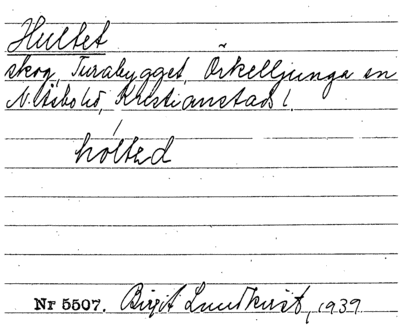 Hultet
skog, Turabygget, Örkelljunga sn
N. Åsbo hd, Kristianstads l.
hólted
Nr 5507. Birgit Lundkvist, 1939